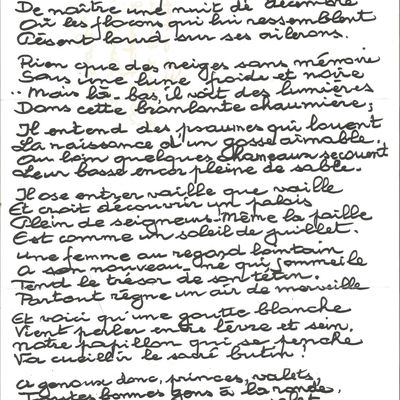 De naître une nuit de décembre
Où les flocons qui lui ressemblent
Pèsent lourd sur ses ailerons.
Rien que des neiges sans mémoire
Sous une lune froide et noire
.. Mais là-bas, il voit des lumières
Dans cette branlante chaumière ;
Il entend des psaumes qui louent
La naissance d'un gosse aimable.
Au loin quelques chameaux secouent
Leur basse encor pleine de sable.
Il ose entrer vaille que vaille
Et croit découvrir un palais
Plein de seigneurs - Même la paille
Est comme un soleil de juillet.
Une femme au regard lointain
A son nouveau-né qui sommeille
Tend le trésor de son tétin.
Partout règne un air de merveille
Et voici qu'une goutte blanche
Vient perler entre lèvre et sein.
Notre papillon qui se penche
Va cueillir le sacré butin !
A genoux donc, princes, valets,
Toutes bonnes gens à la ronde,